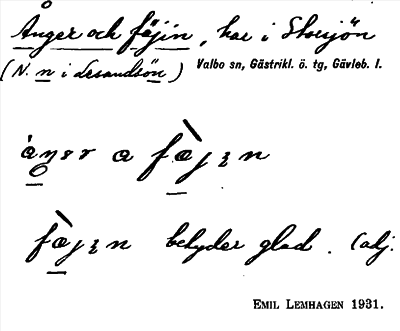 Ånger och fäjin, kar i Storsjön
(N. n i Lesandsön) Valbo sn, Gästrikl. ö. tg, Gävleb. l.
a
betyder glad. (adj.
EMIL LEMHAGEN 1931.